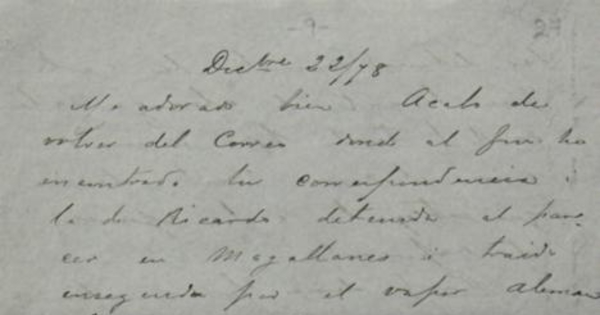 - 9 -
Dicbre 22/78
Mi adorado bien Acabo de
volver del Correo donde al fin he
encontrado tu correspondencia i
la de Ricardo detenida al pare
cer en Magallanes i traida
enseguida por el vapor aleman